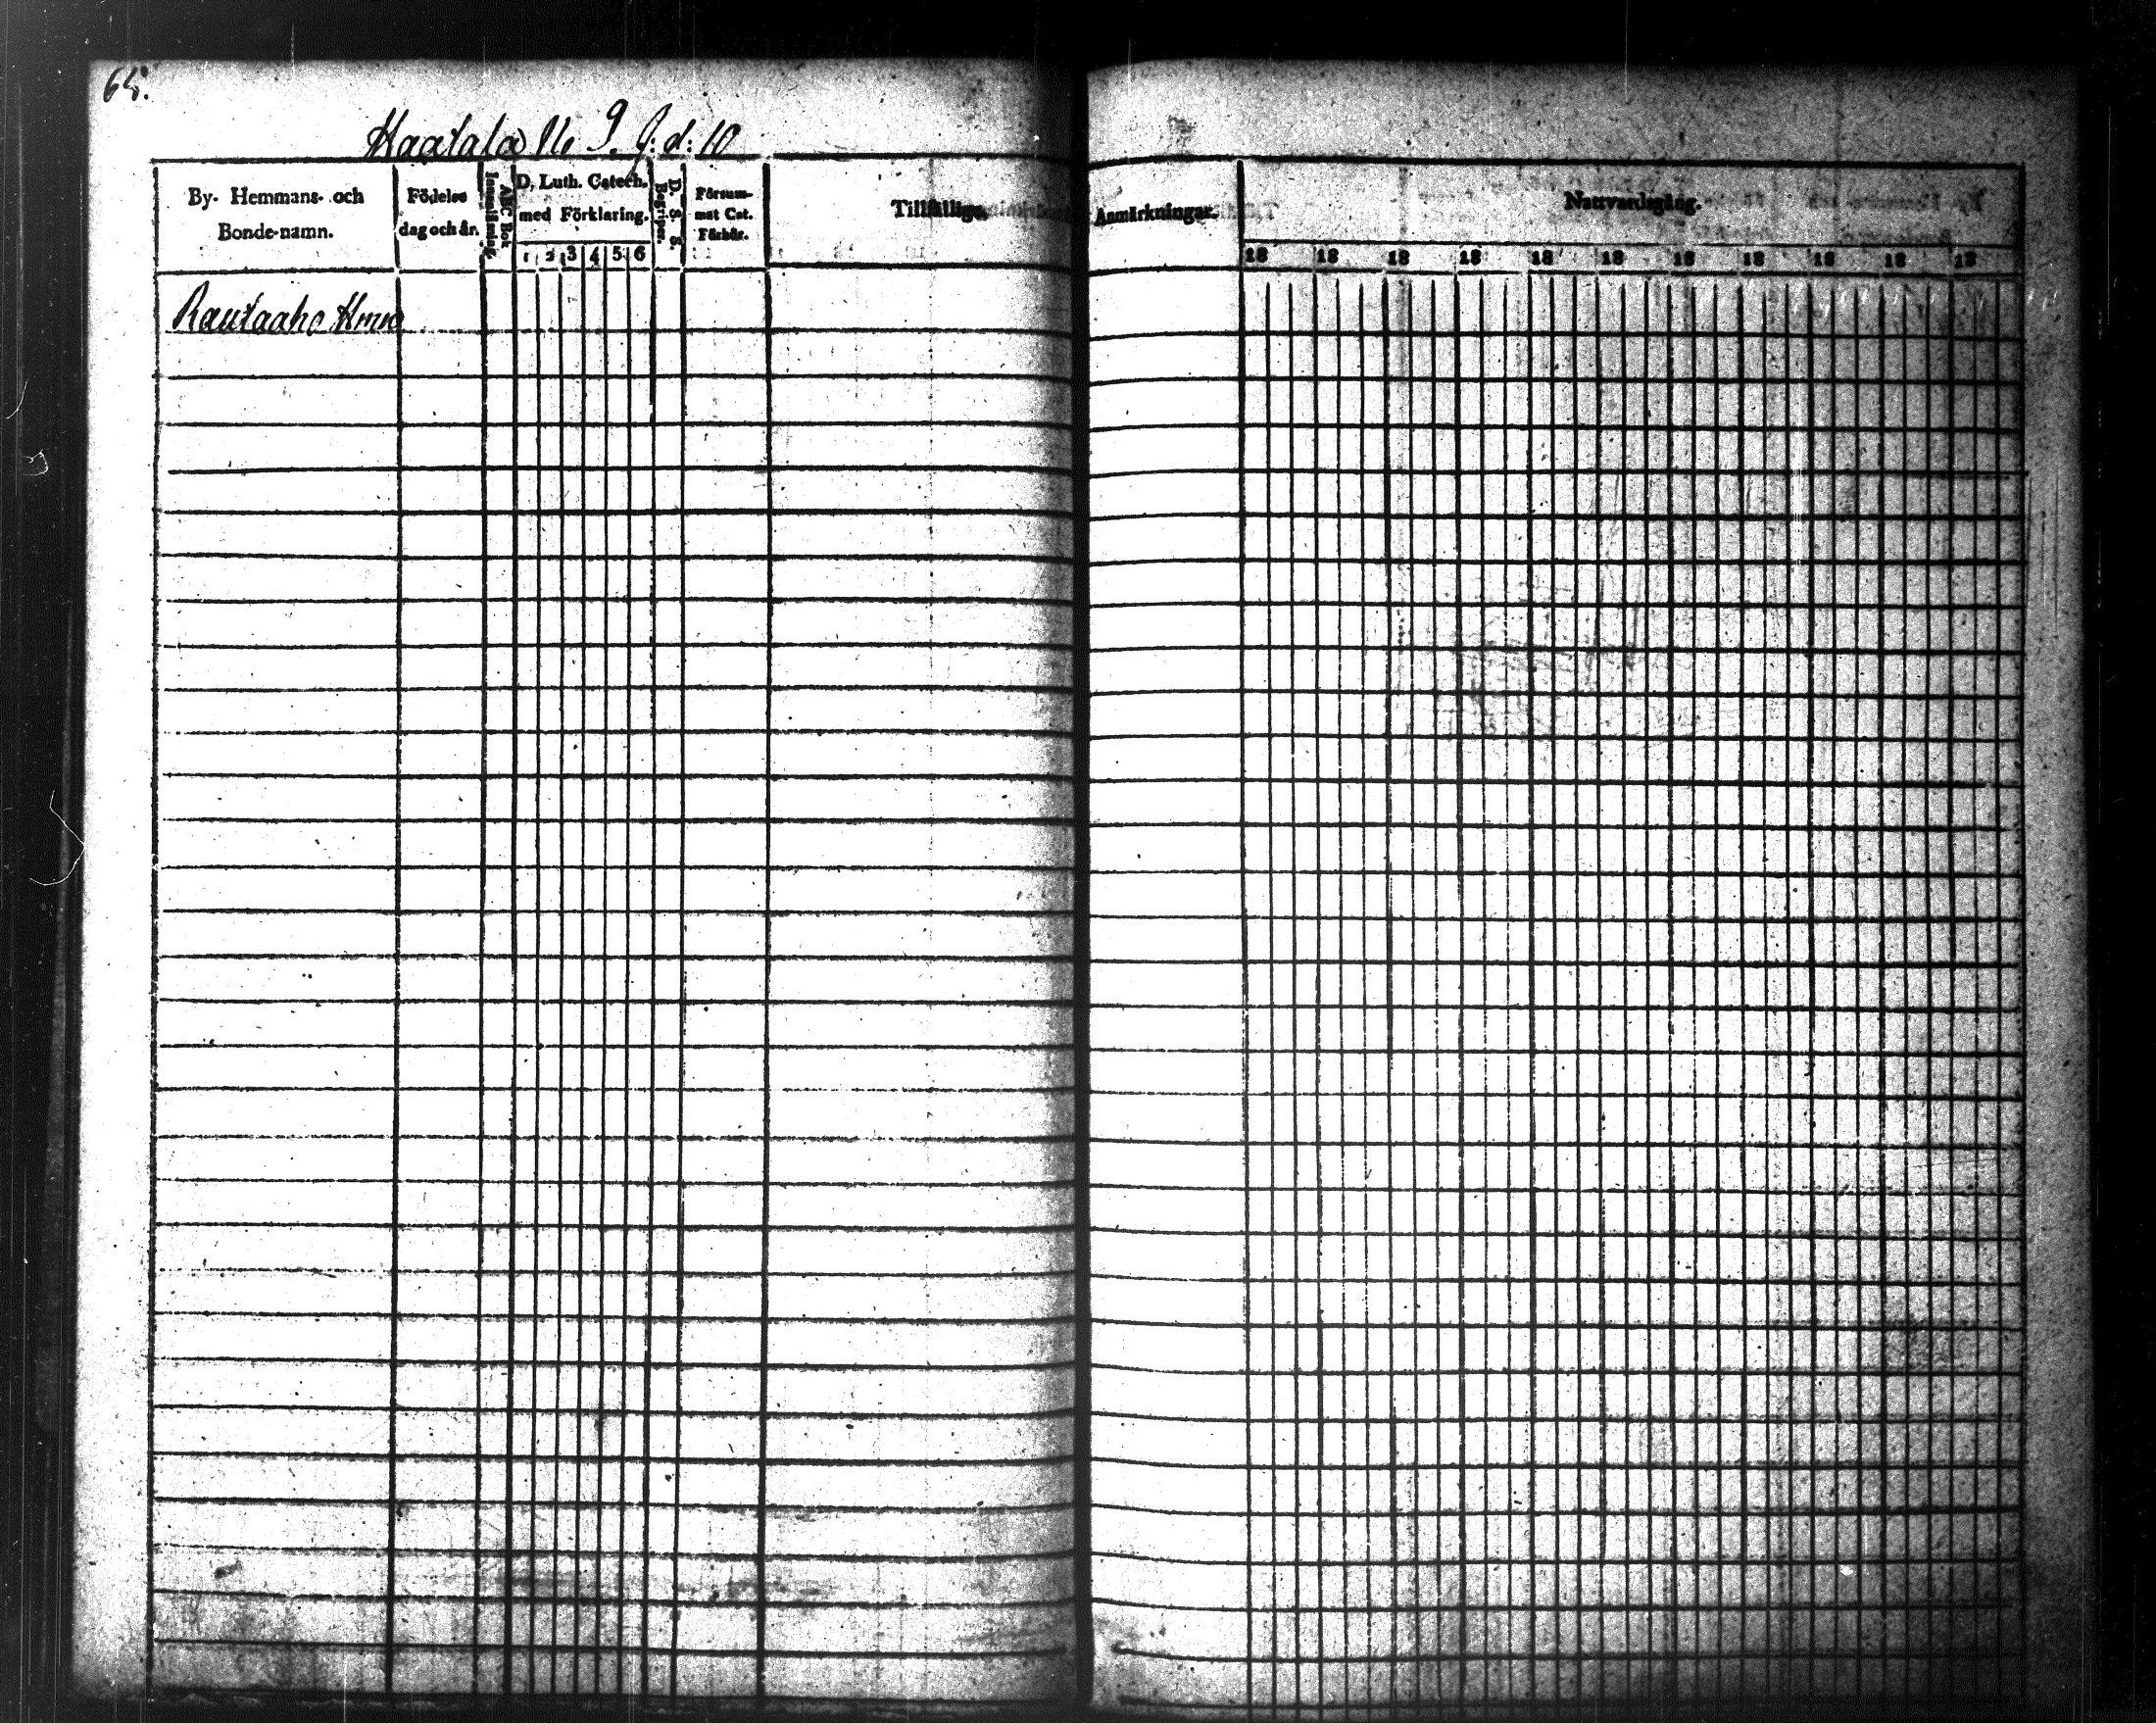 65.
Haatala No 9. J: d: 10
By- Hemmans- och
Bonde-namn.
Födelse
dag och år.
ABC Bok
Innanläsning.
D. Luth. Catech.
med Förklaring.
1 2 3 4 5 6
D. S. S.
Begriper.
Försum-
mat Cat.
Förhör.
Tillfällige
Anmärkningar.
Nattvardsgång.
18 18 18 18 18 18 18 18 18 18 18
Rautaaho Hmn